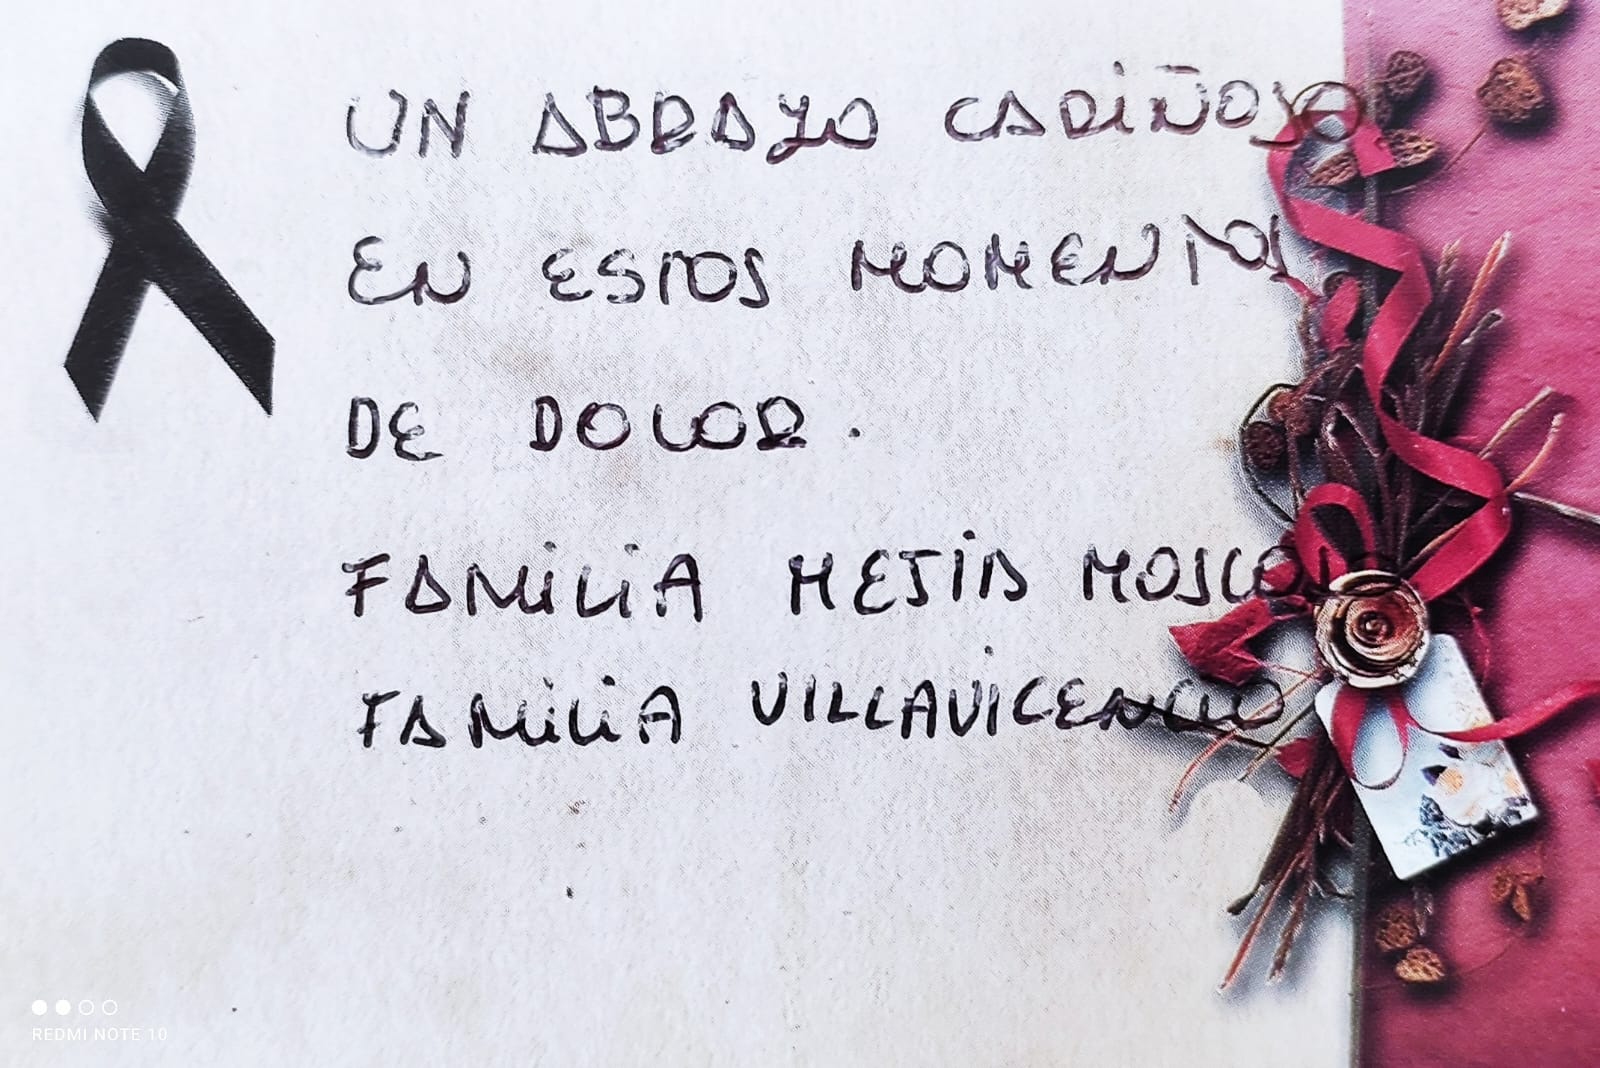 UN ABRAZO CARIÑOSO
EN ESTOS MOMENTOS
DE DOLOR.
FAMILIA MEJIA MOSCOSO
FAMILIA VILLAVICENCIO
REDMI NOTE 10